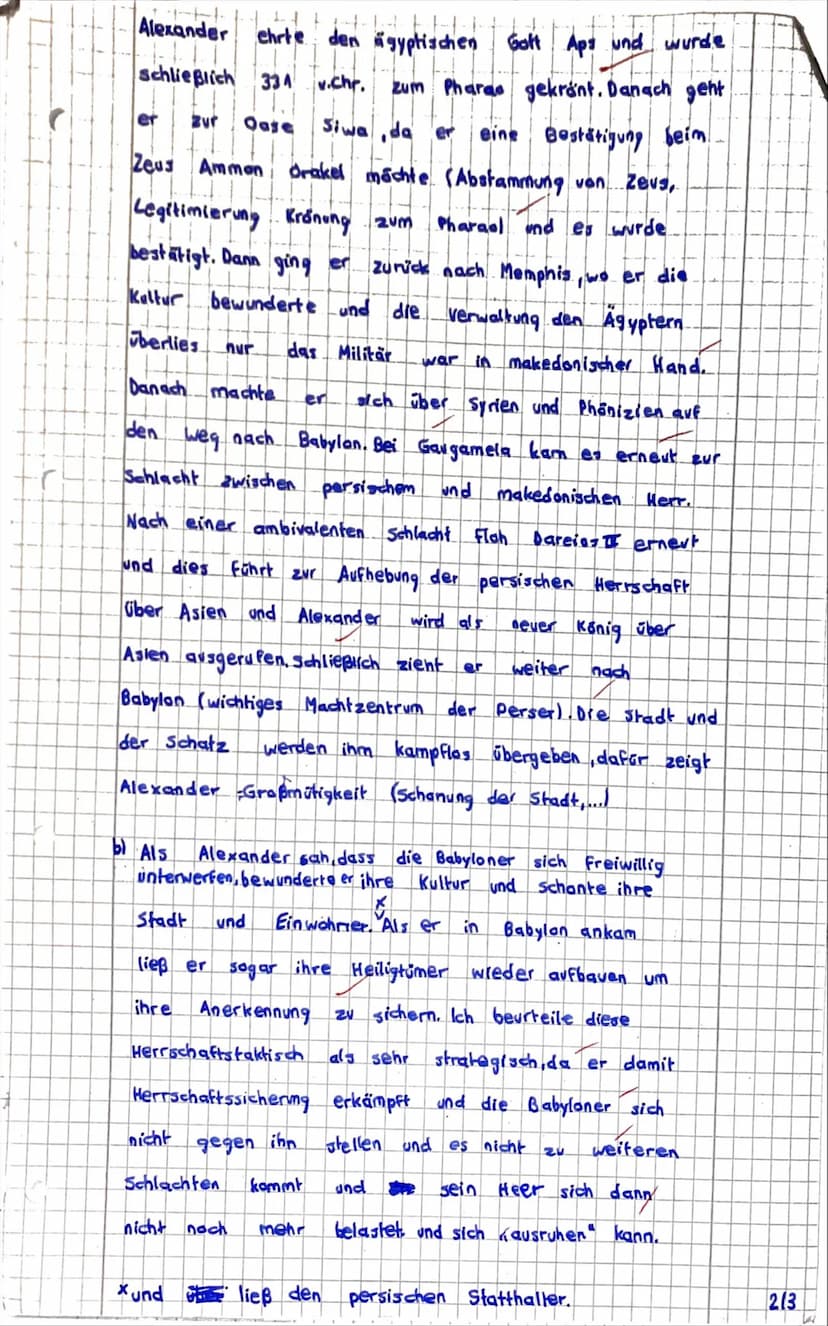 Alexander ehrte den ägyptischen Gott Aps und wurde
schließlich 331 v.Chr. zum Pharao gekrönt. Danach geht
er zur Oase Siwa, da er eine Bestätigung beim
Zeus Ammon Orakel möchte (Abstammung von Zeus,
Legitimierung Krönung zum Pharao) und es wurde
bestätigt. Dann ging er zurück nach Memphis, wo er die
Kultur bewunderte und die Verwaltung den Ägyptern
überlies nur das Militär war in makedonischer Hand.
Danach machte er sich über Syrien und Phönizien auf
den Weg nach Babylon. Bei Gaugamela kam es erneut zur
Schlacht zwischen persischem und makedonischen Herr.
Nach einer ambivalenten Schlacht floh Dareios erneut
und dies führt zur Aufhebung der persischen Herrschaft
über Asien und Alexander wird als neuer König über
Asien ausgerufen. Schließlich zieht er weiter nach
Babylon (wichtiges Machtzentrum der Perser). Die Stadt und
der Schatz werden ihm kampflos übergeben, dafür zeigt
Alexander Großmütigkeit (Schonung der Stadt,...)
b) Als Alexander sah, dass die Babyloner sich freiwillig
unterwerfen, bewunderte er ihre Kultur und schonte ihre
Stadt und Einwohner. x Als er in Babylon ankam
ließ er sogar ihre Heiligtümer wieder aufbauen um
ihre Anerkennung zu sichern. Ich beurteile diese
Herrschaftstaktisch als sehr strategisch, da er damit
Herrschaftssicherung erkämpft und die Babyloner sich
nicht gegen ihn stellen und es nicht zu weiteren
Schlachten kommt und sein Heer sich dann
nicht noch mehr belastet und sich "ausruhen" kann.
x und ließ den persischen Statthalter.
2/3